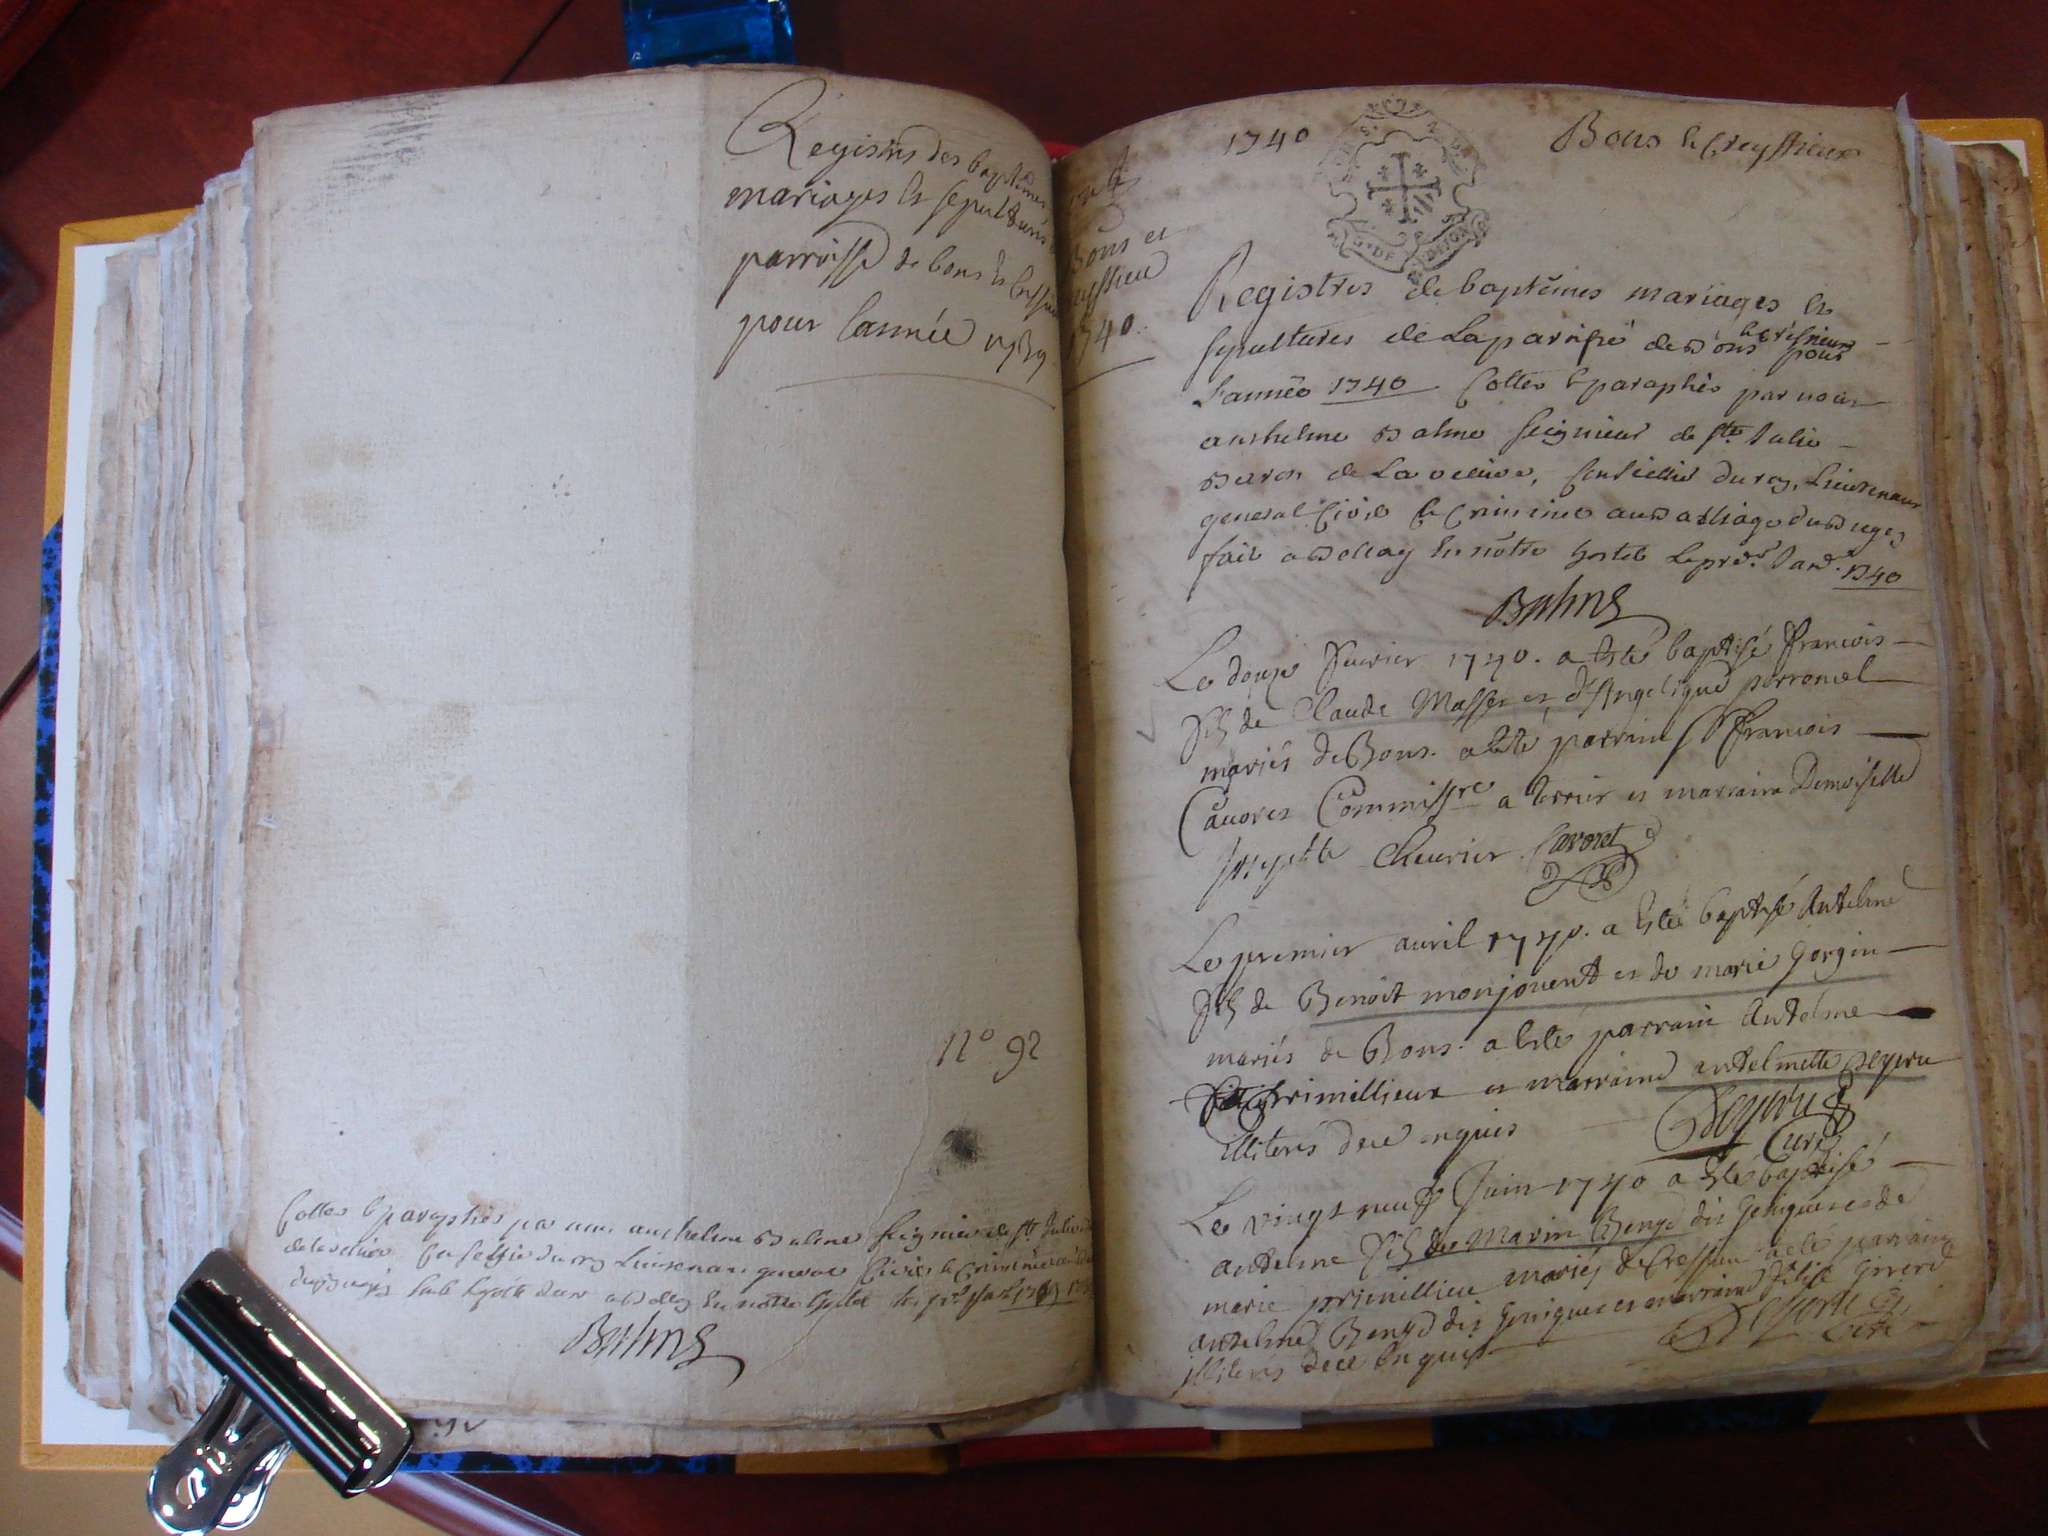 Registres des baptemes
mariages et sepultures
parroisse de bons et
pour l'année 1739
N° 92
Cottes et paraphés par nous anthelme Balme seigneur de ste Julie
du roy Lieutenant general Civil et Criminel
Balme
Bons et
1740.
1740
Bons et Creyssieux
G. DE DIJON
Registres de baptêmes mariages et
sepultures de La paroisse de Bons et Cresieux pour
l'année 1740 Cottes et paraphés par nous
anthelme Balme seigneur de ste Julie
Baron de La velliere, Conseiller du roy, Lieutenant
general Civil et Criminel au Balliage du Bugey
fait a Belley en nôtre hostel Le pre.r Janv. 1740
Balme
Le douze fevrier 1740. a esté baptisé francois
fils de Claude Masses et d'Angelique perronel
mariés de Bons. a été parrain Sr francois
Cavoret Commissre a terrier et marraine Demoiselle
Josephte Chevrier. Cavoret
Le premier avril 1740. a esté baptisé Antelme
fils de Benoit monjouent et de marie gorgin
mariés de Bons. a esté parrain Antelme
primillieux et marraine antelmette Deyrieu
illiterés de ce enquis
Curé
Le vingt neuf Juin 1740 a esté baptisé
antelme fils de Marin Benod dit Genigue et de
marie primillieu mariés de Cressieu a été parrain
antelme Benod dit Genigue et marraine Girerd
illiterés de ce enquis
Curé